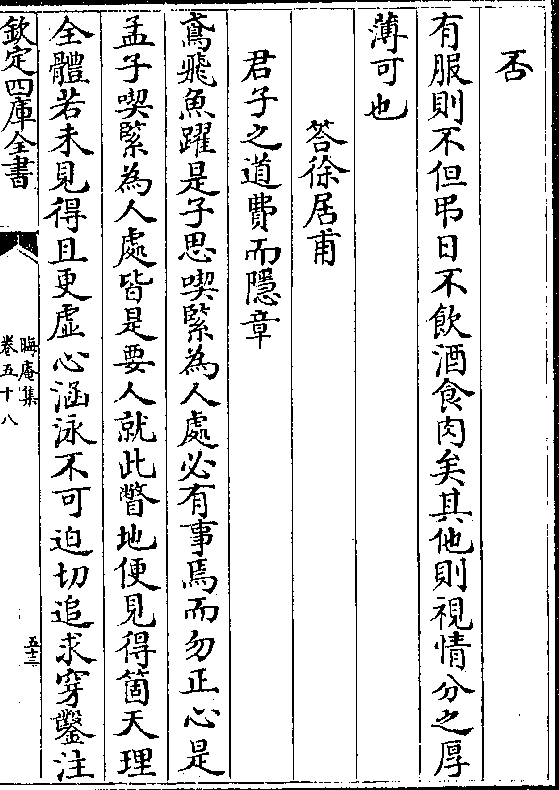 否
有服則不但弔日不飲酒食肉矣其他則視情分之厚
薄可也
答徐居甫
君子之道費而隱章
鳶飛魚躍是子思喫緊為人處必有事焉而勿正心是
孟子喫緊為人處皆是要人就此瞥地便見得箇天理
全體若未見得且更虚心涵泳不可迫切追求穿鑿注
欽定四庫全書
晦庵集
卷五十八
五十三